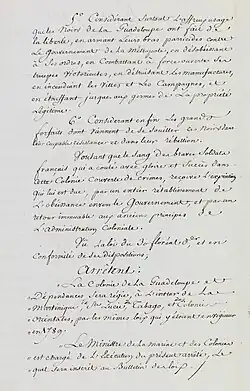 5°. Considérant Surtout L'affreux usage
que les Noirs de la Guadeloupe ont fait de
la liberté, en armant Leurs bras parricides contre
Le Gouvernement de la Métropole, en désobéissant
à Ses ordres, en Combattant à force ouverte Ses
troupes Victorieuses, en détruisant les manufactures,
en incendiant les Villes et Les Campagnes, et
en étouffant jusques aux germes de La propriété
légitime.
6°. Considérant enfin Les grands
forfaits dont viennent de Se Souiller ces Noirs dans
leur coupable résistance et dans leur rébellion.
Voulant que le Sang des braves Soldats
français qui a coulé avec Gloire et Succès dans
cette Colonie Couverte de crimes, reçoive L'expiation
qui lui est due par un entier rétablissement de
L'obéissance envers le Gouvernement, et par un
retour immuable aux anciens principes de
L'administration Coloniale.
Vu La loi du 30 floréal et en
Conformité de Ses dispositions,
Arrêtent:
La Colonie de la Guadeloupe et
Dépendances Sera régie, à L'instar de la
Martinique, de Ste Lucie, Tabago, et des Colonies
Orientales, par les mêmes loix qui y étaient en vigueur
en 1789.
Le Ministre de la marine et des Colonies
est chargé de L'exécution du présent arrêté, Le
quel Sera inséré au Bulletin des loix.